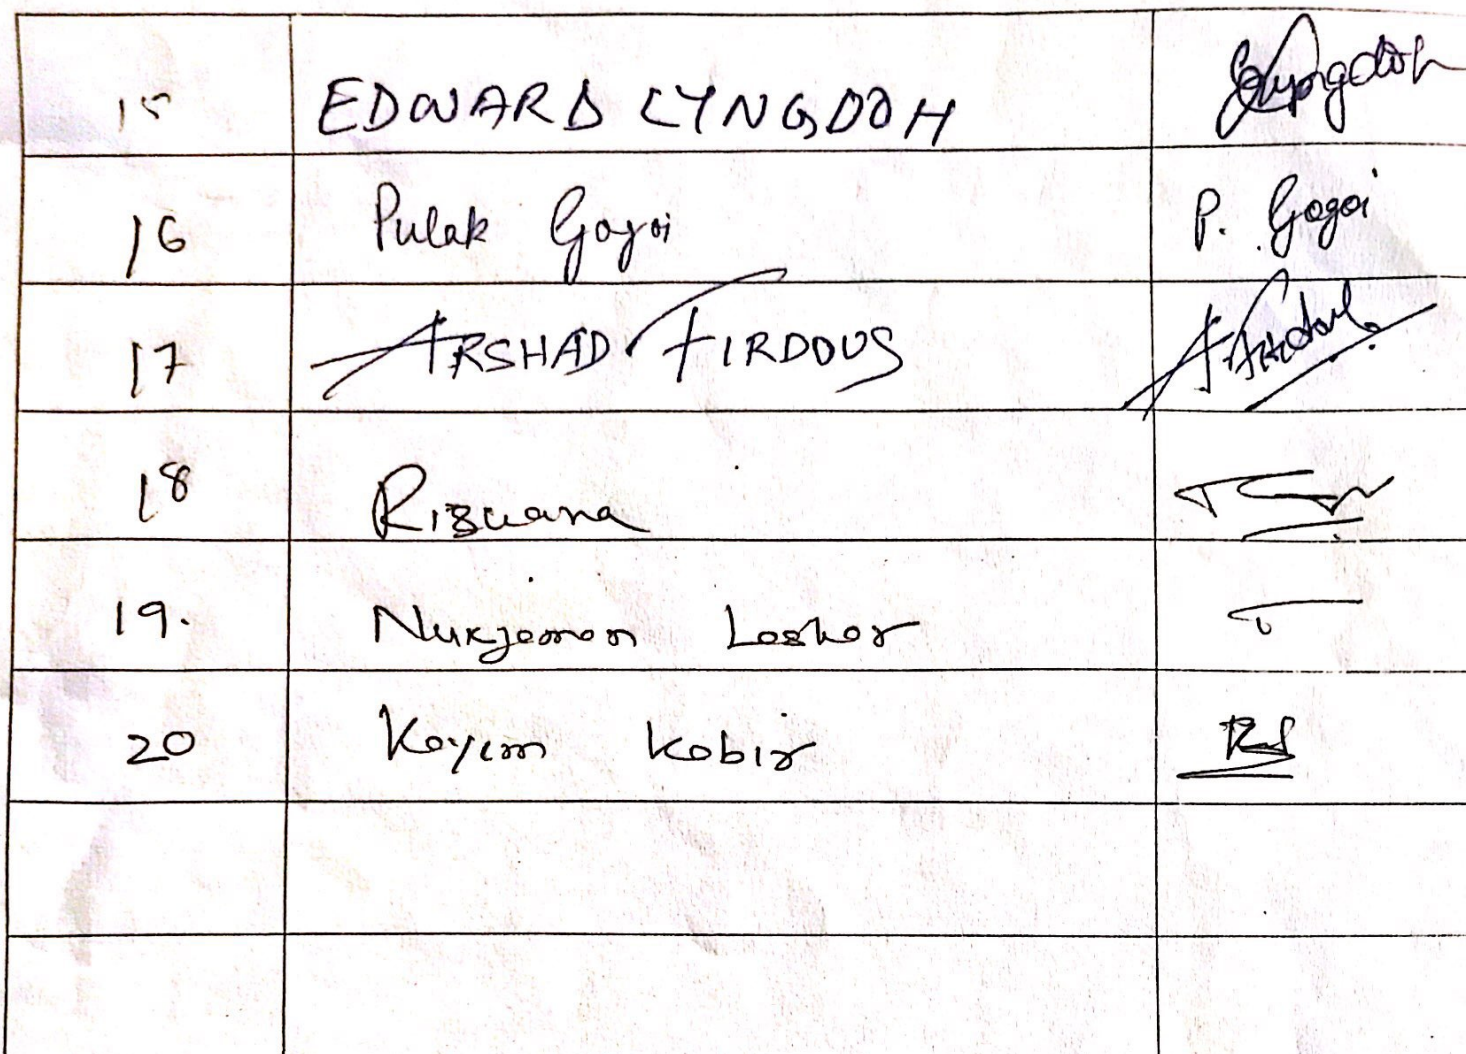 15 EDWARD LYNGDOH
16 Pulak Gogoi P. Gogoi
17 ARSHAD FIRDOUS
18 Rizwana
19. Nurjaman Laskar
20 Kayim Kabir